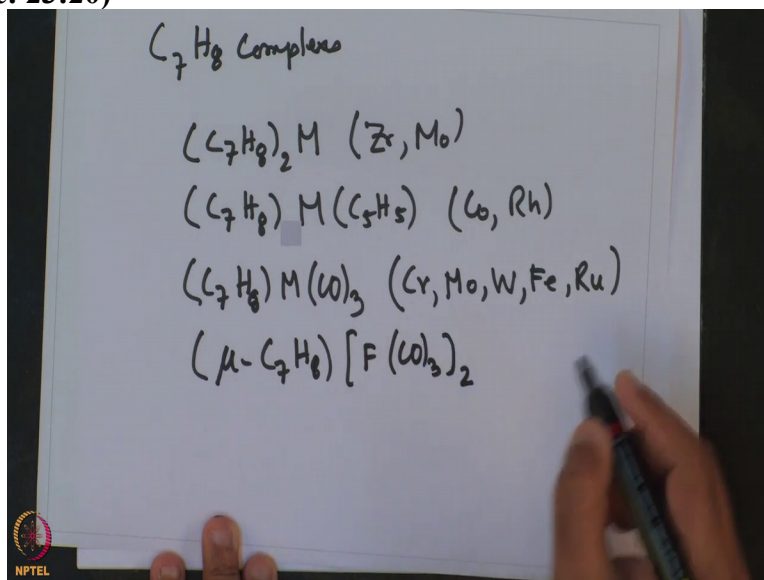 C₇H₈ Complexes
(C₇H₈)₂ M (Zr, Mo)
(C₇H₈) M(C₅H₅) (Co, Rh)
(C₇H₈) M(CO)₃ (Cr, Mo, W, Fe, Ru)
(μ-C₇H₈) [F (CO)₃]₂
NPTEL